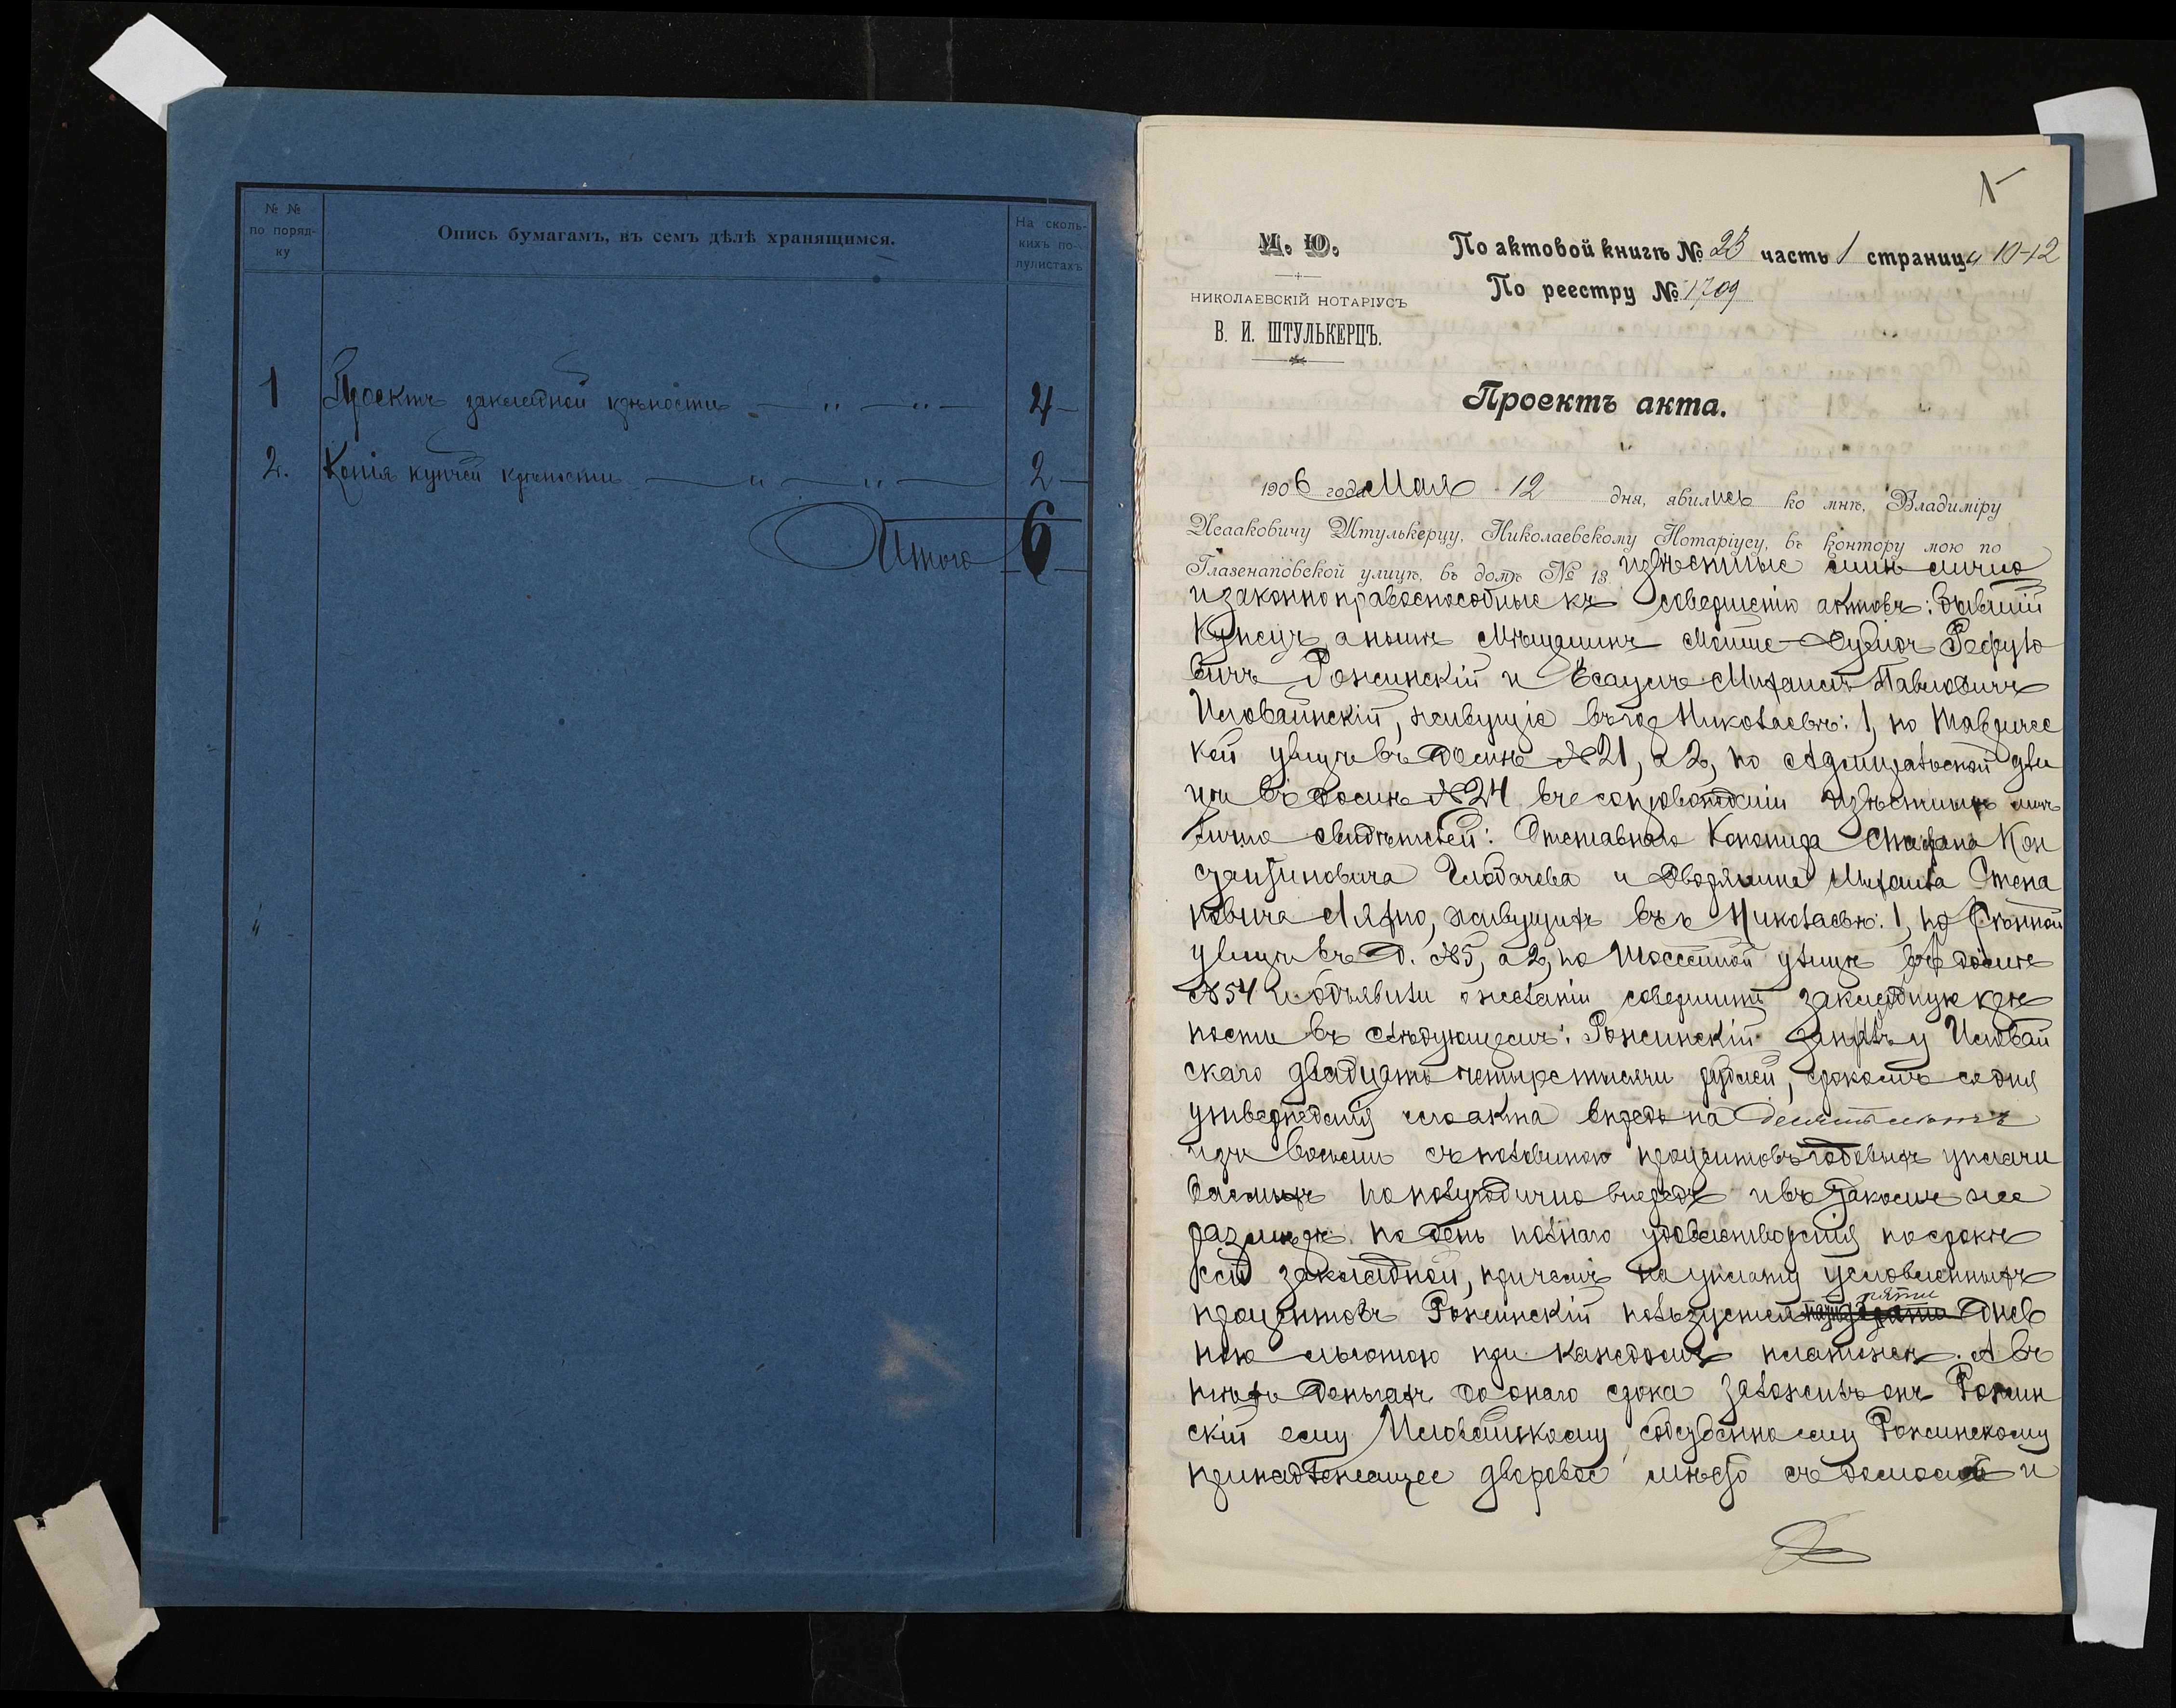 № №
по поряд-
ку
Опись бумагамъ, въ семъ дѣлѣ хранящимся.
На сколь-
кихъ по-
лулистахъ
1 Проектъ закладной крѣпости 4
2. Копія купчей крѣпости 2
Итого 6
1
М. Ю.
НИКОЛАЕВСКІЙ НОТАРІУСЪ
В. И. ШТУЛЬКЕРЦЪ.
По актовой книгѣ № 23 часть 1 страницы 10-12
По реестру № 1709
Проектъ акта.
1906 года Мая 12 дня, явились ко мнѣ, Владиміру
Исааковичу Штулькерцу, Николаевскому Нотаріусу, въ контору мою по
Глазенаповской улицѣ, въ домѣ № 13 извѣстные мнѣ лично
и законно правоспособные къ совершенію актовъ: бывшій
Купецъ, а нынѣ Мѣщанинъ Мойше
вичъ Рожинскій и Есаулъ Михаилъ Павловичъ
Иловайскій, живущіе въ гор Николаевѣ: 1, по Тавричес
кой улицѣ въ домѣ №21, а 2, по Адмиральской ули
цѣ въ домѣ №24, въ сопровожденіи извѣстныхъ мнѣ
лично свидѣтелей: Отставнаго Стефана Кон
стантиновича Глобачева и Дворянина Михаила Степа
новича Ляхно, живущихъ въ г Николаевѣ: 1, по Сѣнной
улицѣ въ д. №5, а 2, по Шоссейной улицѣ въ домѣ
№54 и объявили о желаніи совершить закладную крѣ
пость въ слѣдующемъ: Рожинскій занялъ у Иловай
скаго двадцать четыре тысячи рублей, срокомъ со дня
утвержденія сего акта впредь на десять лѣтъ
изъ восьми съ половиною процентовъ годовыхъ уплачи
ваемыхъ по полугодично впередъ и въ такомъ же
размѣрѣ по день полнаго удовлетворенія по срокѣ
сей закладной, причемъ на уплату условленныхъ
процентовъ Рожинскій пользуется пяти днев
ною льготою при каждомъ платежѣ. А въ
тѣхъ деньгахъ до онаго срока заложилъ онъ Рожин
скій ему Иловайскому собственно ему Рожинскому
принадлежащее дворовое мѣсто съ домомъ и